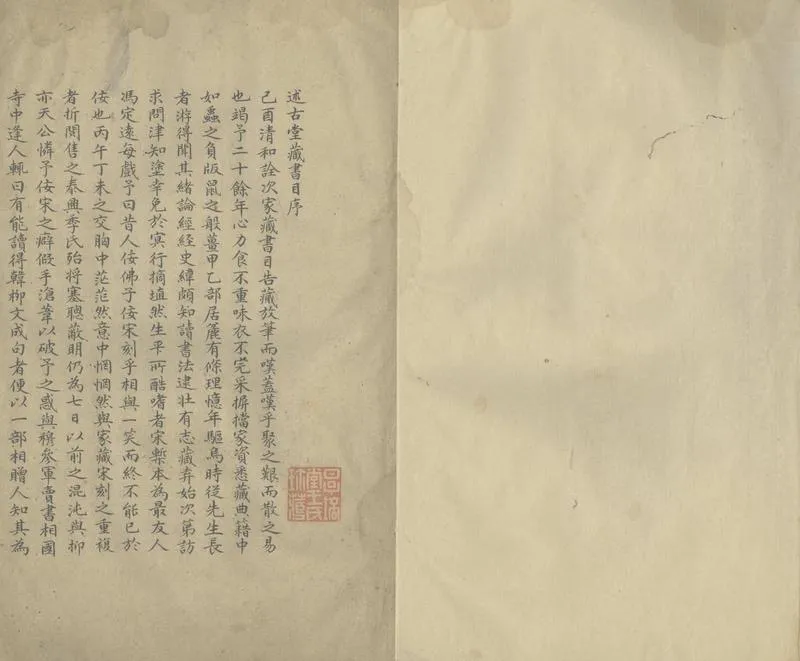 述古堂藏書目序
己酉清和詮次家藏書目告蕆放筆而嘆蓋嘆乎聚之艱而散之易
也竭予二十餘年心力食不重味衣不完采摒擋家資悉藏典籍中
如蟲之負版鼠之般薑甲乙部居麤有條理憶年驅烏時從先生長
者游得聞其緒論經經史緯頗知讀書法逮壯有志藏弆始次第訪
求問津知塗幸免於冥行摘埴然生平所酷嗜者宋槧本為最友人
馮定遠每戲予曰昔人佞佛子佞宋刻乎相與一笑而終不能已於
佞也丙午丁未之交胸中茫茫然意中惘惘然與家藏宋刻之重複
者折閱售之泰興季氏殆將塞聰蔽明仍為七日以前之混沌與抑
亦天公憐予佞宋之癖假手滄葦以破予之惑與穆參軍賣書相國
寺中逢人輒曰有能讀得韓柳文成句者便以一部相贈人知其為